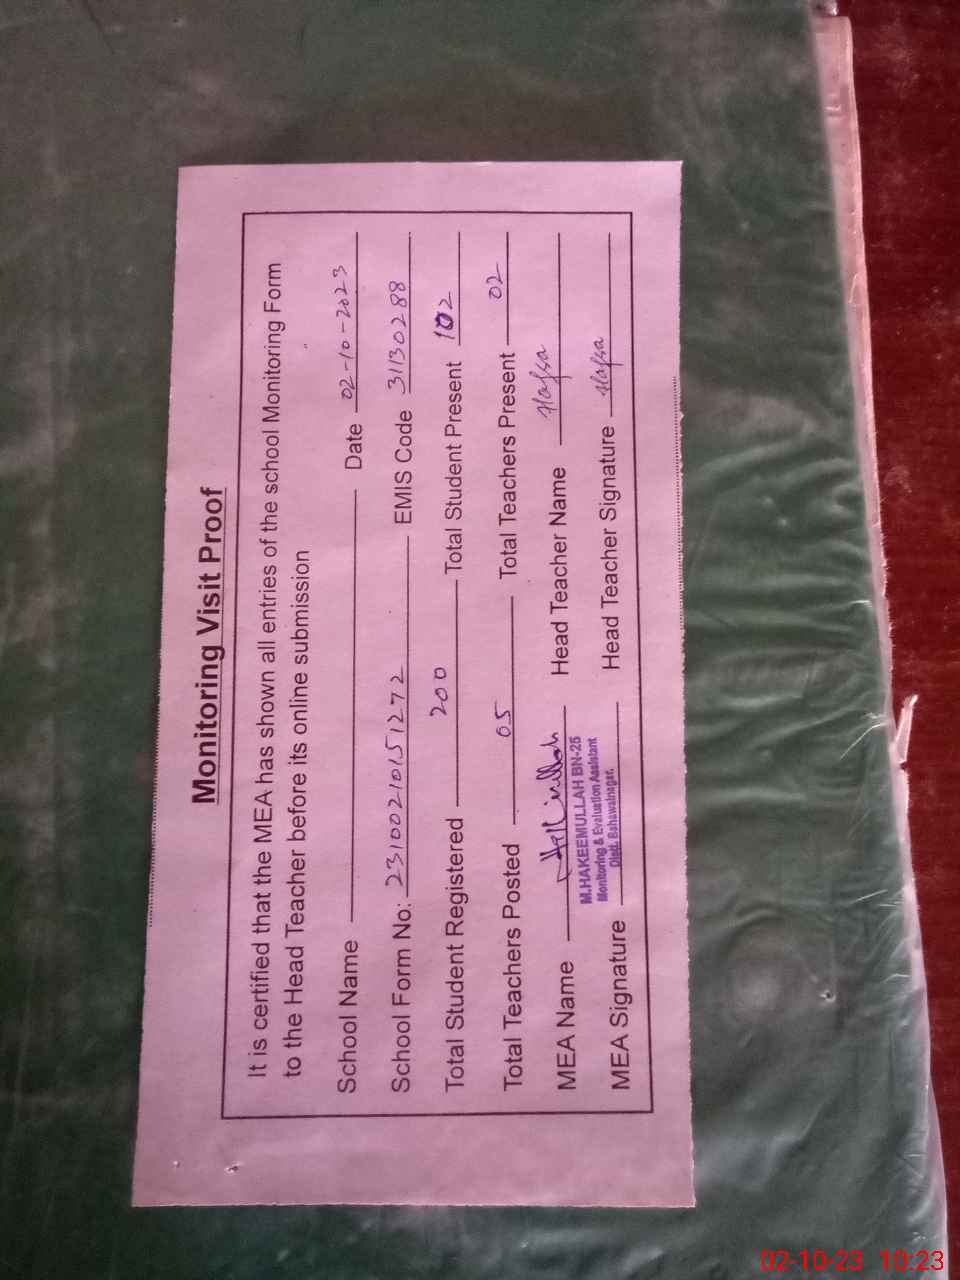 Monitoring Visit Proof
It is certified that the MEA has shown all entries of the school Monitoring Form
to the Head Teacher before its online submission
School Name Date 02-10-2023
School Form No: 23100210151272 EMIS Code 31130288
Total Student Registered 200 Total Student Present 102
Total Teachers Posted 05 Total Teachers Present 02
MEA Name Head Teacher Name Hafsa
M.HAKEEMULLAH BN-25
Monitoring & Evaluation Assistant
Distt. Bahawalnagar.
MEA Signature Head Teacher Signature Hafsa
02-10-23 10:23